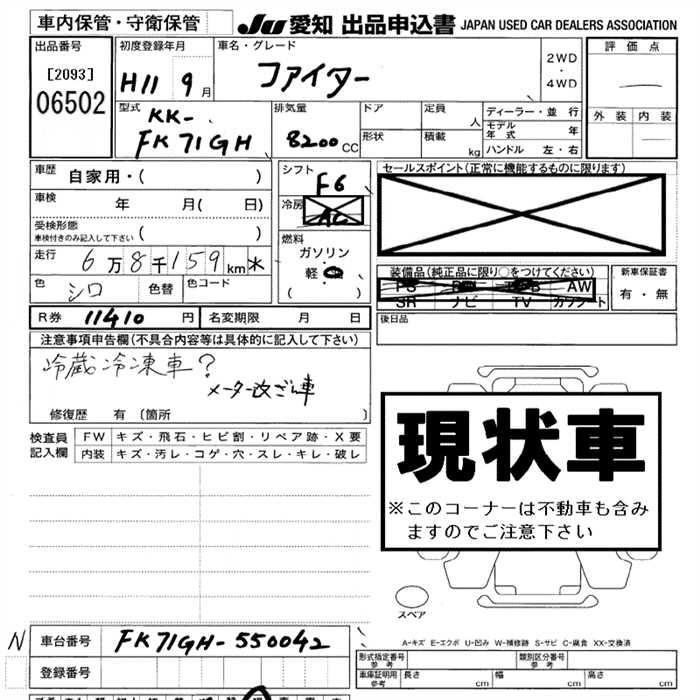 車内保管・守衛保管
JU 愛知 出品申込書 JAPAN USED CAR DEALERS ASSOCIATION
出品番号
[2093]
06502
初度登録年月
H11 9月
車名・グレード
ファイター
2WD
・
4WD
評価点
外装 内装
型式
KK-
FK71GH
排気量
8200cc
ドア
形状
定員
人
積載
kg
ディーラー・並行
モデル年式 年
ハンドル 左・右
車歴
自家用・( )
車検
年 月( 日)
受検形態
車検付きのみ記入して下さい ( )
走行
6万8千159km
色
シロ
色替
色コード
シフト
F6
冷房
AC
燃料
ガソリン
軽・
( )
セールスポイント(正常に機能するものに限ります)
装備品(純正品に限り○をつけてください)
PS AW
SR ナビ TV カワシート
新車保証書
有・無
後日品
R券 11410円
名変期限 月 日
注意事項申告欄(不具合内容等は具体的に記入して下さい)
冷蔵冷凍車?
メーター改ざん車
修復歴 有 〔箇所 〕
検査員記入欄
FW キズ・飛石・ヒビ割・リペア跡・X要
内装 キズ・汚レ・コゲ・穴・スレ・キレ・破レ
現状車
※このコーナーは不動車も含み
ますのでご注意下さい
スペア
N
車台番号 FK71GH-550042
登録番号
A-キズ E-エクボ U-凹み W-補修跡 S-サビ C-腐食 XX-交換済
形式指定番号
参考
類別区分番号
参考
車庫証明用
参考
長さ cm
幅 cm
高さ cm